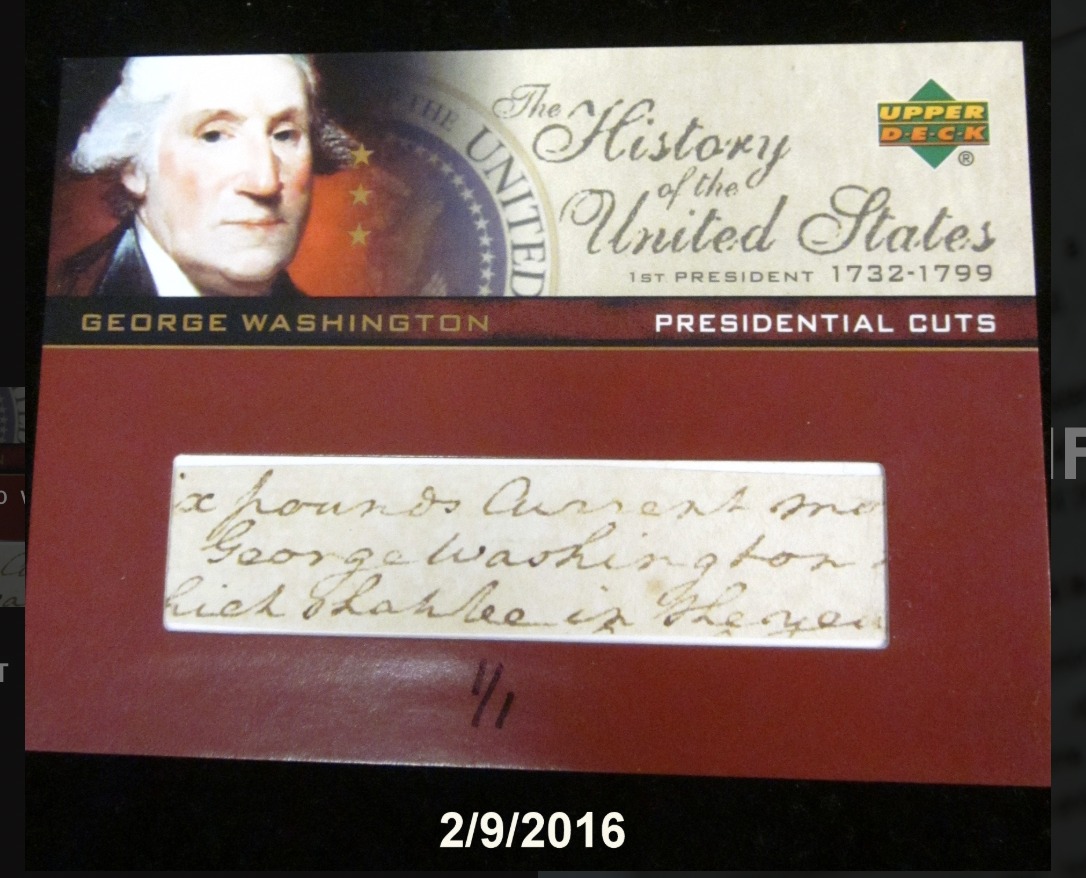 THE UNITED
The History
of the
United States
1ST PRESIDENT 1732-1799
UPPER
D·E·C·K
®
GEORGE WASHINGTON
PRESIDENTIAL CUTS
x pounds Current mo
George Washington
hich Shall be in The yea
1/1
2/9/2016